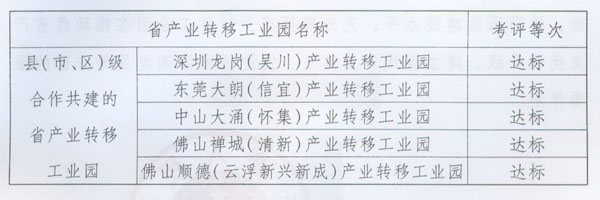 省产业转移工业园名称 考评等次
县(市、区)级 深圳龙岗(吴川)产业转移工业园 达标
合作共建的 东莞大朗(信宜)产业转移工业园 达标
省产业转移 中山大涌(怀集)产业转移工业园 达标
佛山禅城(清新)产业转移工业园 达标
工业园 佛山顺德(云浮新兴新成)产业转移工业园 达标